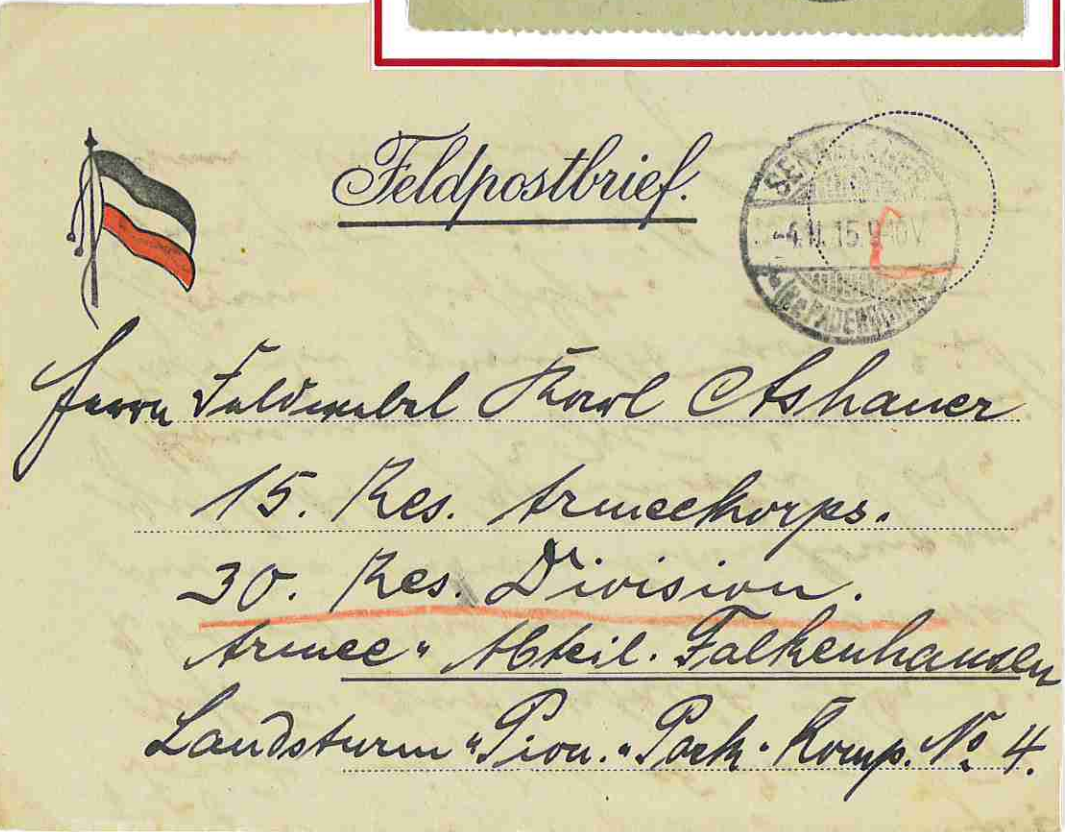 Feldpostbrief.
SENNELAGER
-4.11.15.9-10V.
(Bz PADERBORN)
Herrn Feldwebel Karl Ashauer
15. Res. Armeekorps.
30. Res. Division.
Armee" Abteil. Falkenhausen
Landsturm "Pion. "Park" Komp. No 4.